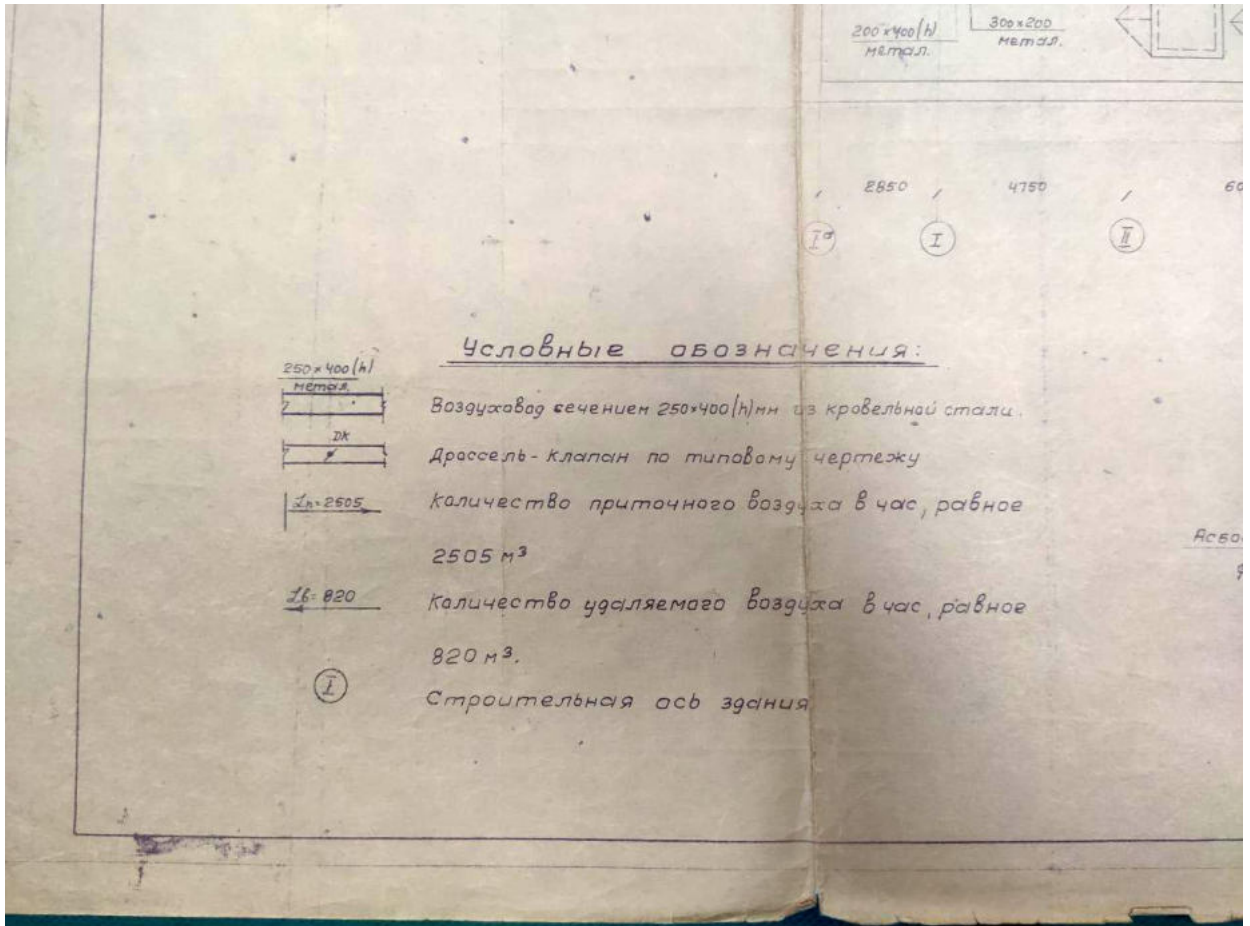 200×400(h)
метал.
300×200
метал.
2850 4750
Iа I II
Условные обозначения:
250×400(h)
метал.
Воздуховод сечением 250×400(h)мм из кровельной стали.
ДК
Дроссель-клапан по типовому чертежу
Lп=2505
Количество приточного воздуха в час, равное
2505 м³
Lв=820
Количество удаляемого воздуха в час, равное
820 м³.
I
Строительная ось здания